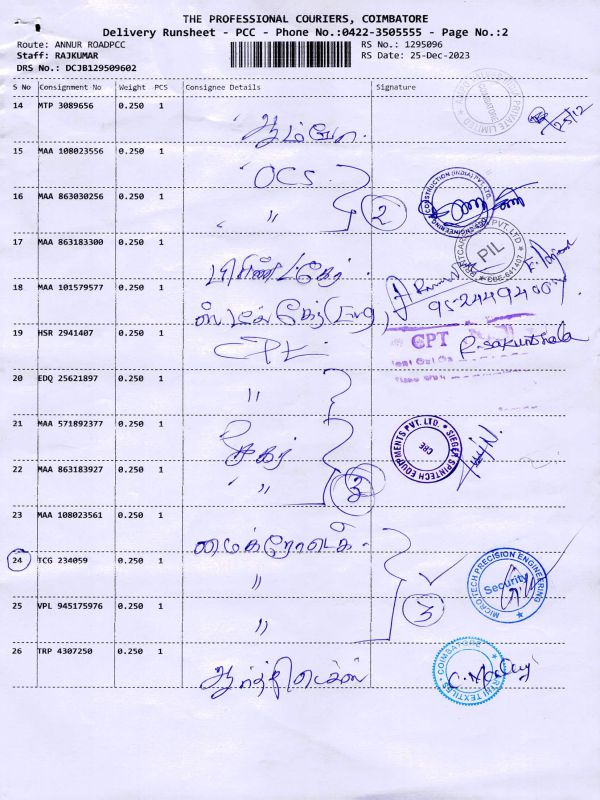 THE PROFESSIONAL COURIERS, COIMBATORE
Delivery Runsheet - PCC - Phone No.:0422-3505555 - Page No.:2
Route: ANNUR ROADPCC RS No.: 1295096
Staff: RAJKUMAR RS Date: 25-Dec-2023
DRS No.: DCJB129509602
S No Consignment No Weight PCS Consignee Details Signature
14 MTP 3089656 0.250 1
25/12
15 MAA 108023556 0.250 1
OCS
16 MAA 863030256 0.250 1 " 2
CONSTRUCTION (INDIA) PVT. LTD.
17 MAA 863183300 0.250 1
PIL
18 MAA 101579577 0.250 1
19 HSR 2941407 0.250 1 CPT
CPT R. Sakunthala
20 EDQ 25621897 0.250 1 "
21 MAA 571892377 0.250 1
SIEGER SPINTECH EQUIPMENTS PVT. LTD. CBE
22 MAA 863183927 0.250 1 " 3
23 MAA 108023561 0.250 1 மைக்ரோடெக்
24 TCG 234059 0.250 1 "
MICROTECH PRECISION ENGINEERING Security
25 VPL 945175976 0.250 1 " 3
26 TRP 4307250 0.250 1
COIMBATORE